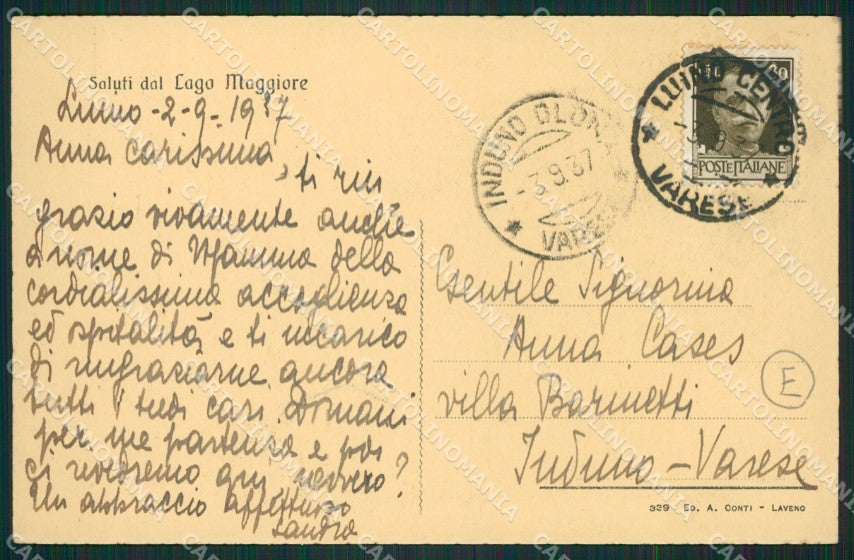 Saluti dal Lago Maggiore
Luino - 2 - 9 - 1937
Anna carissima,
ti rin
grazio vivamente anche
a nome di Mamma della
cordialissima accoglienza
ed ospitalità e ti incarico
di ringraziarne ancora
tutti i tuoi cari. Domani
per me partenza e poi
ci rivedremo qui, nevvero?
Un abbraccio affettuoso
Sandra
INDUNO OLONA
-3.9.37
VARESE
LUINO CENTRO
-3.9.37
VARESE
60
POSTE ITALIANE
Gentile Signorina
Anna Cases
villa Barinetti
Induno - Varese
E
339 ED. A. CONTI - LAVENO
CARTOLINOMANIA